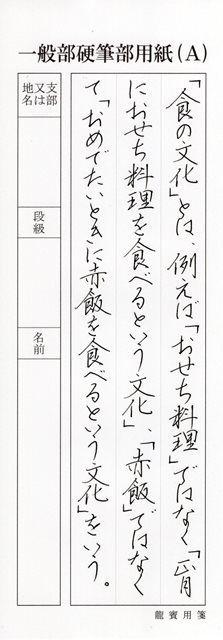 一般部硬筆部用紙(A)
「食の文化」とは、例えば「おせち料理」ではなく「正月
におせち料理を食べるという文化」、「赤飯」ではなく
て「おめでたいときに赤飯を食べるという文化」をいう。
支部又は地名
段級
名前
龍賓用箋